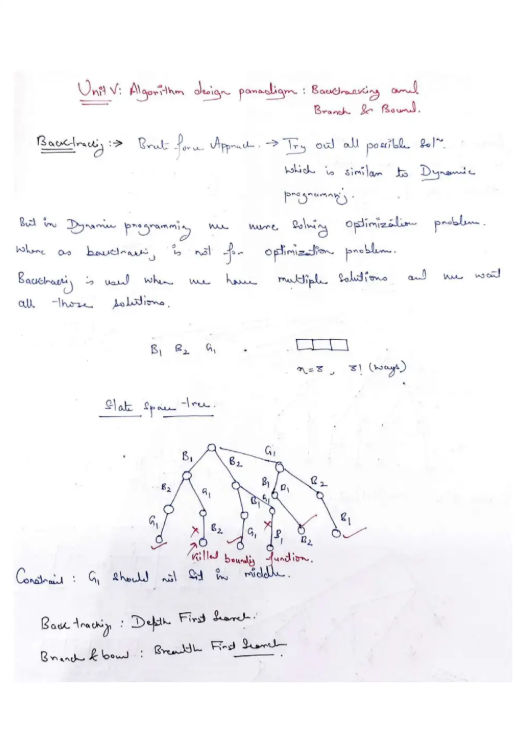 Unit V: Algorithm design paradigm: Backtracking and
Branch & Bound.
Backtracking :→ Brute force Approach. → Try out all possible Solⁿ
which is similar to Dynamic
programming.
But in Dynamic programming we were solving optimization problem.
Where as backtracking is not for optimization problem.
Backtracking is used when we have multiple solutions and we want
all those solutions.
B₁ B₂ G₁ .
n=3, 3! (ways)
State space tree.
B₁ B₂ G₁
B₂ G₁ B₁ G₁ B₁ B₁ B₂
G₁ B₂ G₁ B₁ B₂ B₁
Killed bounding function.
Constraint : G₁ should not sit in middle.
Back tracking : Depth First Search.
Branch & bound : Breadth First Search